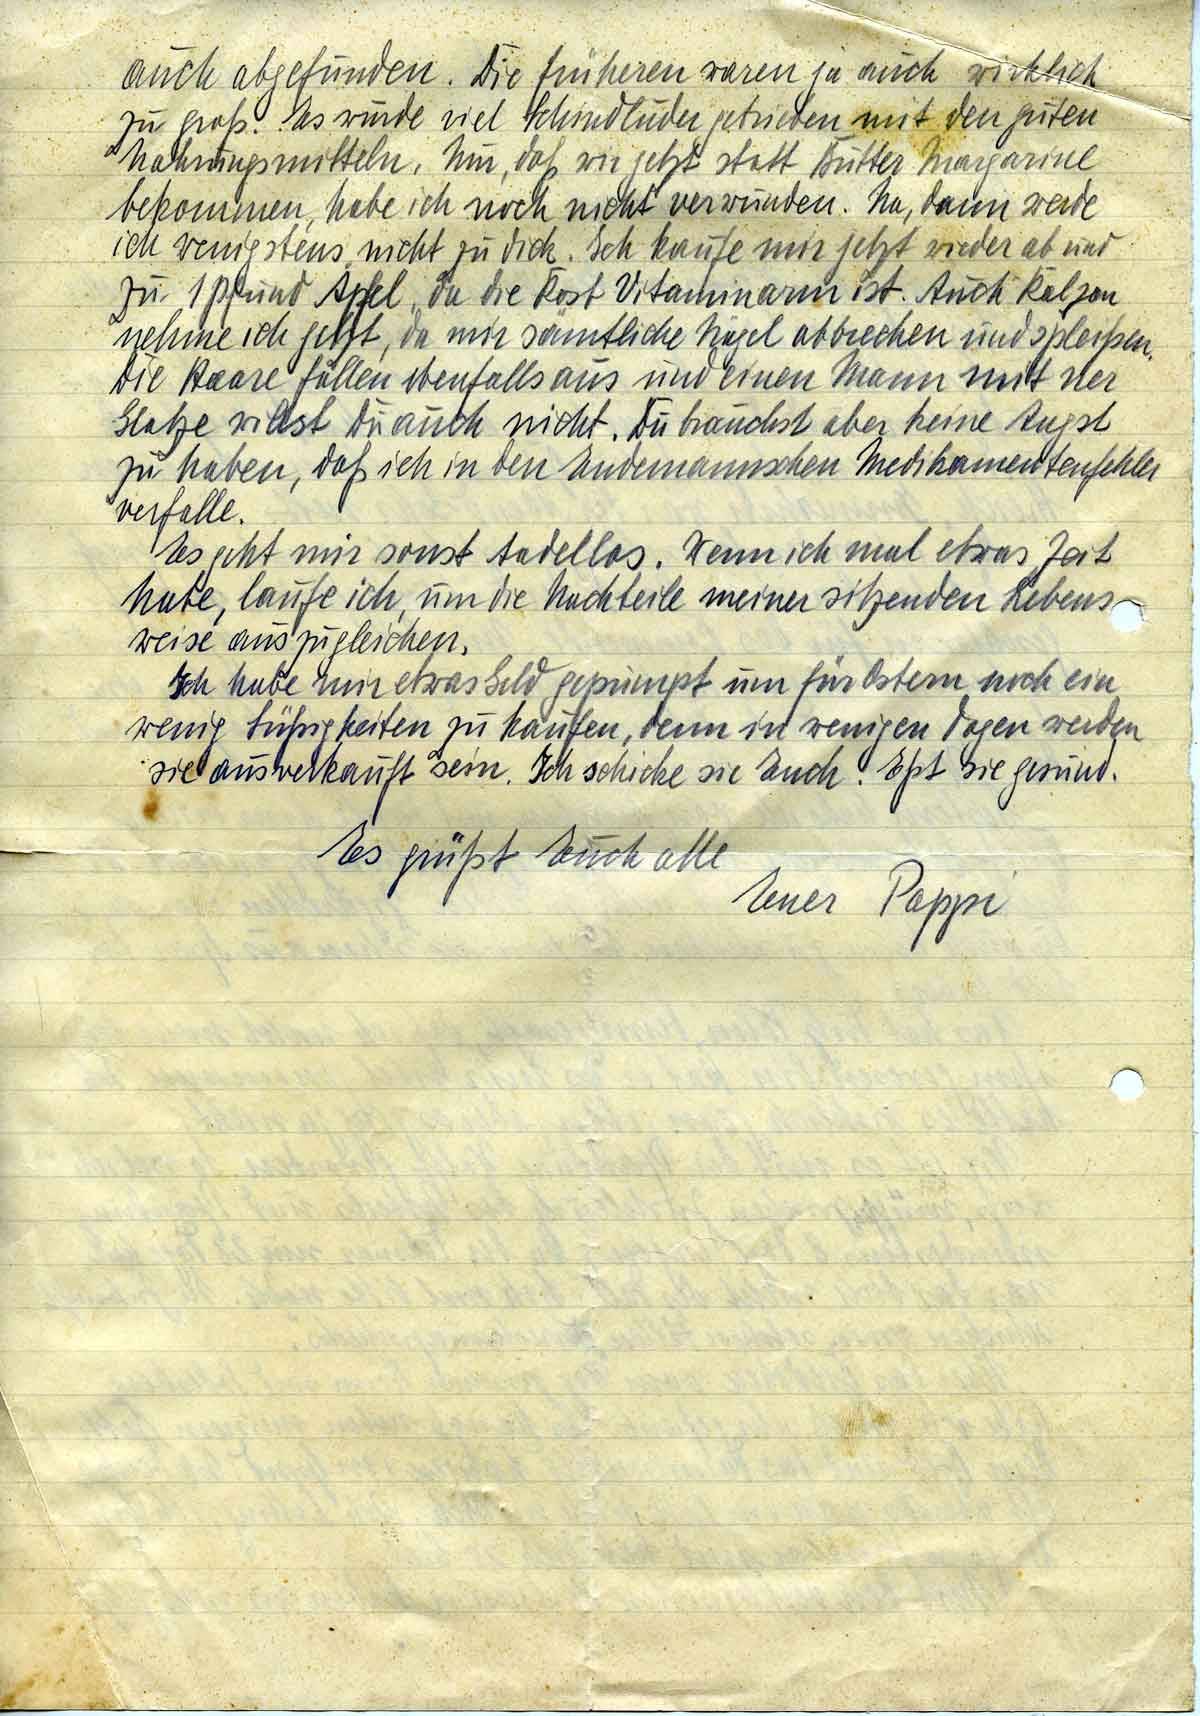 auch abgefunden. Die früheren waren ja auch wirklich
zu groß. Es wurde viel Schindluder getrieben mit den guten
Nahrungsmitteln. Nur, daß wir jetzt statt Butter Margarine
bekommen, habe ich noch nicht verwunden. Na, dann werde
ich wenigstens nicht zu dick. Ich kaufe mir jetzt wieder ab und
zu 1 Pfund Äpfel, da die Kost Vitaminarm ist. Auch Kalzan
nehme ich jetzt, da mir sämtliche Nägel abbrechen und spleißen.
Die Haare fallen ebenfalls aus und einen Mann mit ner
Glatze willst Du auch nicht. Du brauchst aber keine Angst
zu haben, daß ich in den Endemannschen Medikamentenfehler
verfalle.
Es geht mir sonst tadellos. Wenn ich mal etwas Zeit
habe, laufe ich, um die Nachteile meiner sitzenden Lebens
weise auszugleichen.
Ich habe mir etwas Geld gepumpt um für Ostern noch ein
wenig Süßigkeiten zu kaufen, denn in wenigen Tagen werden
sie ausverkauft sein. Ich schicke sie Euch. Eßt sie gesund.
Es grüßt Euch alle
Euer Pappi